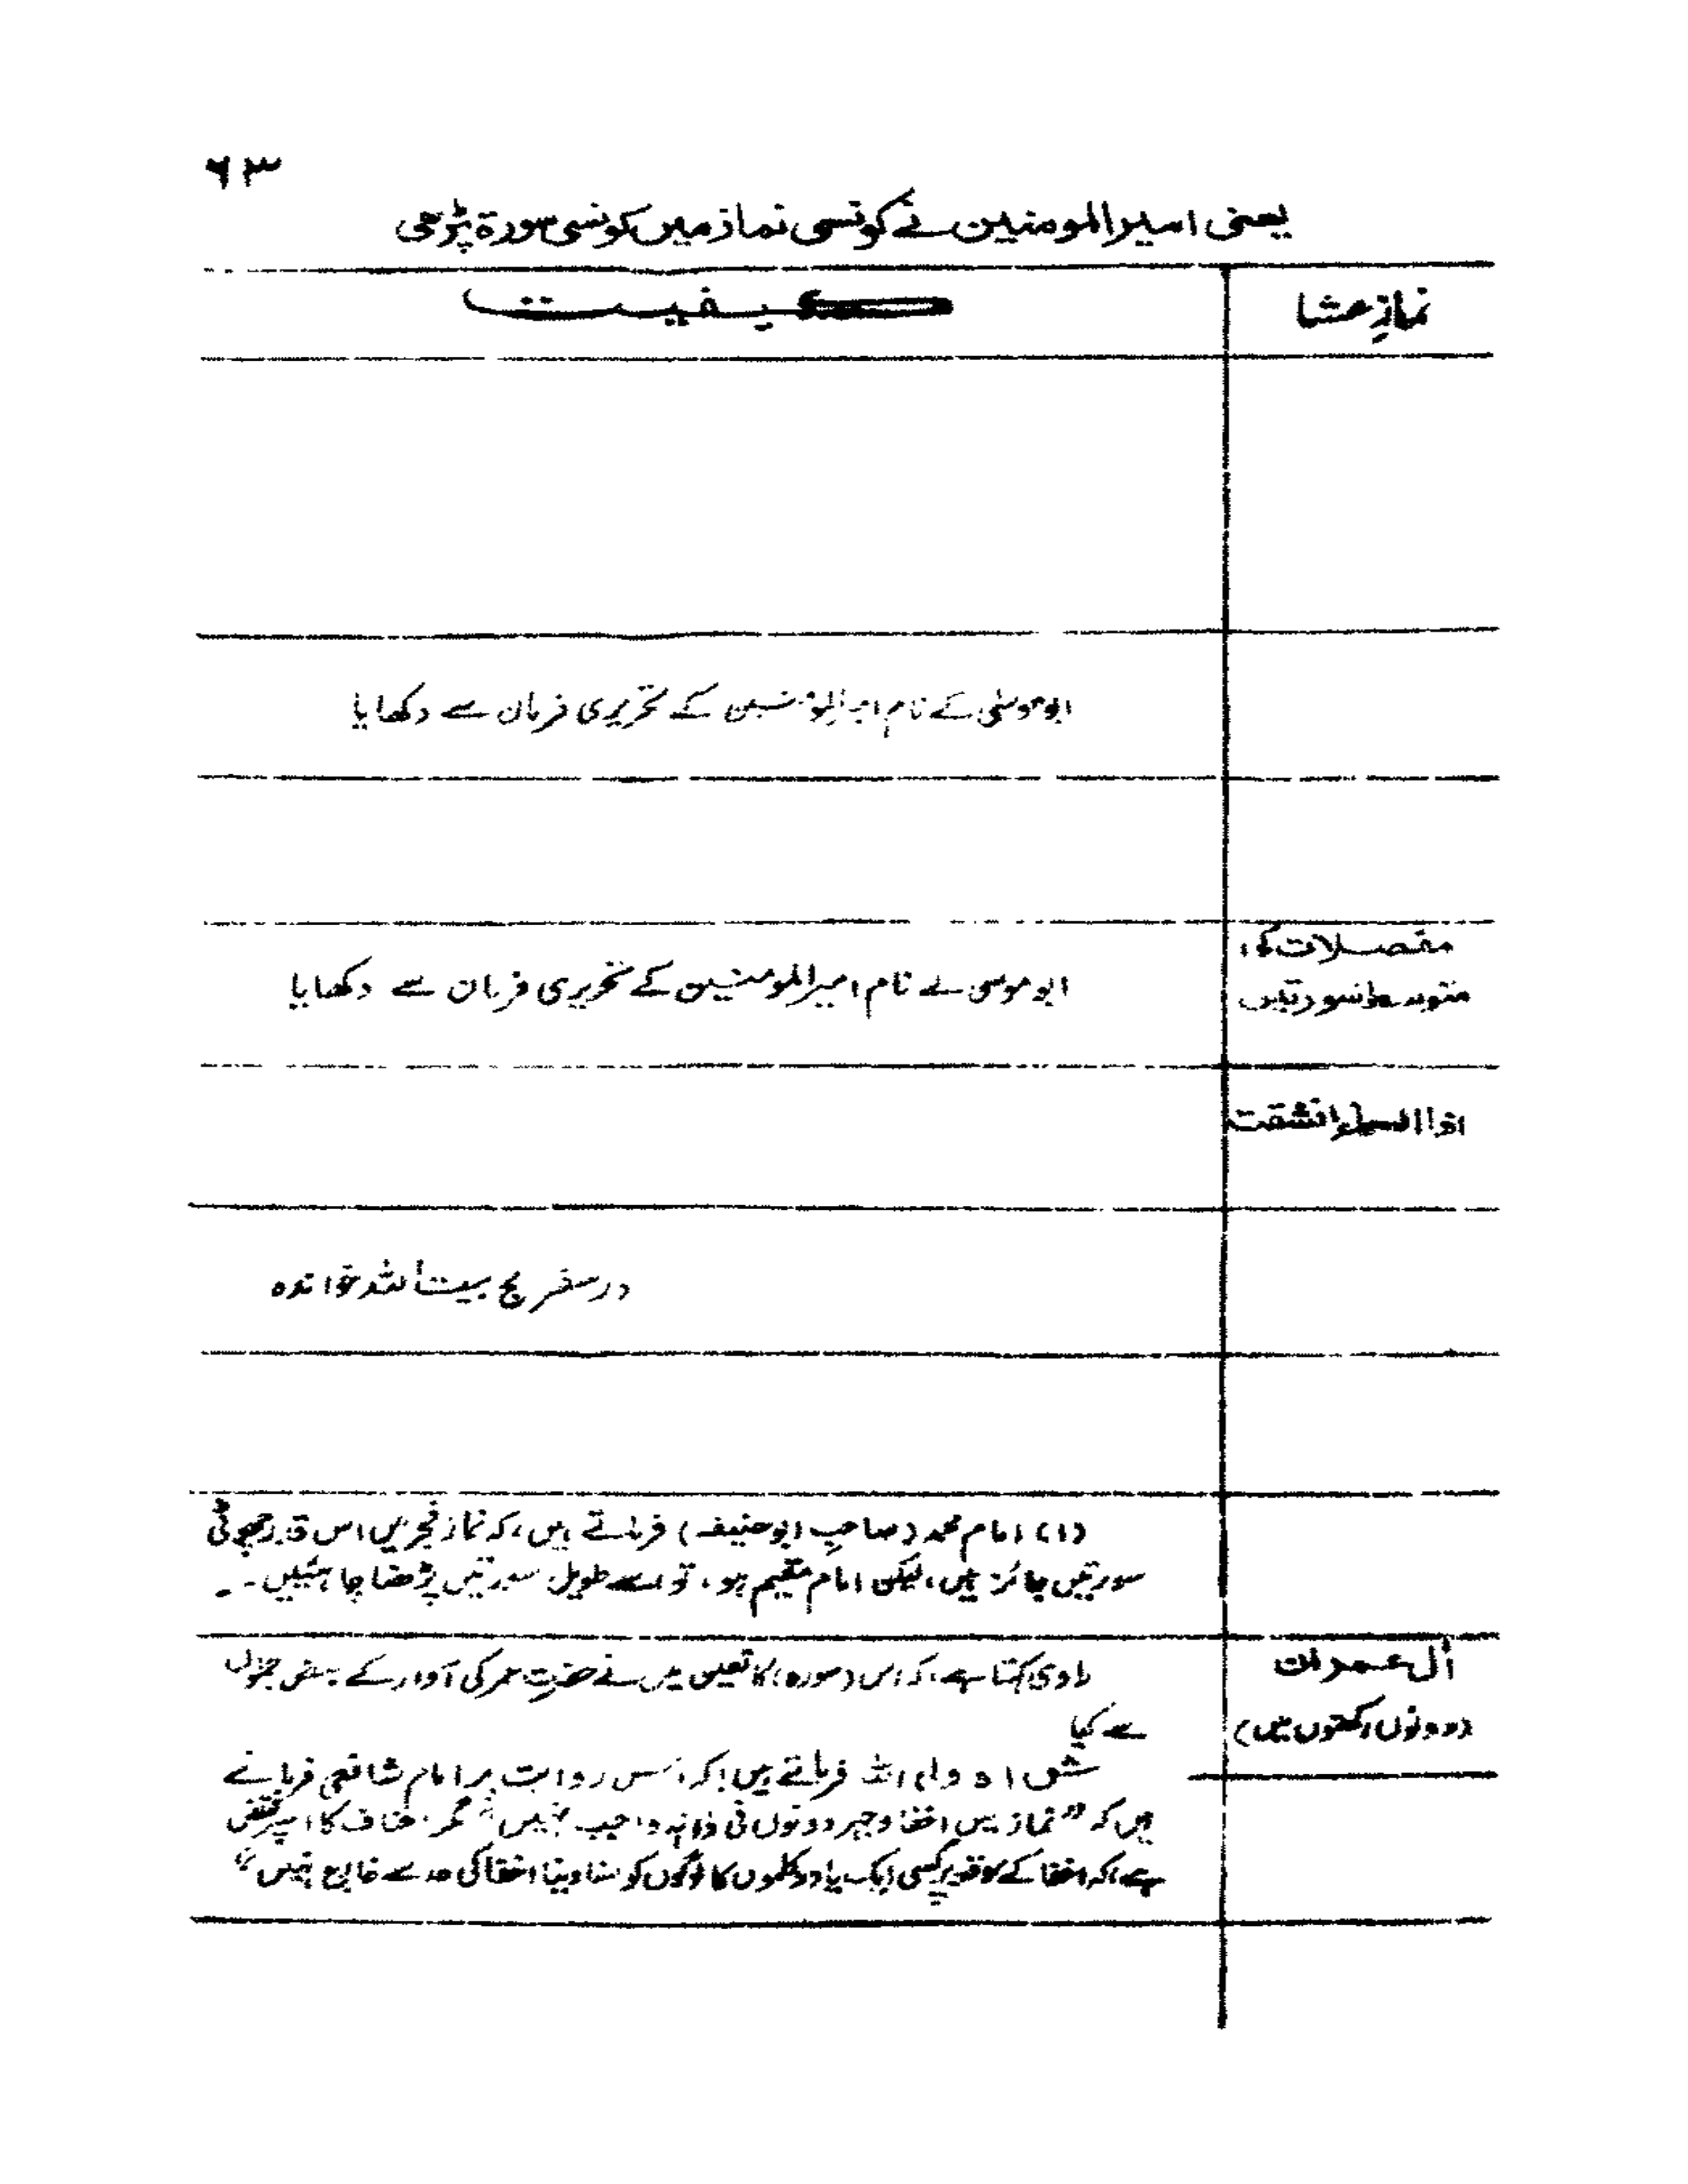 ۶۳
یعنی امیرالمومنین نے کونسی نماز میں کونسی سورۃ پڑھی
نمازِ عشا
کیفیت
ابوموسٰی کے نام امیرالمؤمنین کے تحریری فرمان سے دکھایا
مفصلات کی
متوسط سورتیں
ابوموسی کے نام امیرالمومنین کے تحریری فرمان سے دکھایا
اذا السماء انشقت
در سفر حج بیت اللہ خواندہ
(۱) امام محمد (صاحبِ ابوحنیفہ) فرماتے ہیں، کہ نماز فجر میں اس قدر چھوٹی
سورتیں جائز ہیں، لیکن امام مقیم ہو، تو اسے طویل سورتیں پڑھنا چاہئیں۔
آل عمران
(دونوں رکعتوں میں)
راوی کہتا ہے، کہ اس (سورہ) کا تعین میں نے حضرت عمر کی آواز کے بعض
سے کیا
شاہ ولی اللہ فرماتے ہیں، کہ اس روایت پر امام شافعی فرماتے
ہیں کہ "نماز میں اخفا و جہر دونوں فی ذاتہ واجب نہیں" مگر احناف کا
ہے، کہ اخفا کے موقعہ پر کسی ایک یا دو کلموں کا لوگوں کو سنا دینا اخفا کی حد سے خارج نہیں"